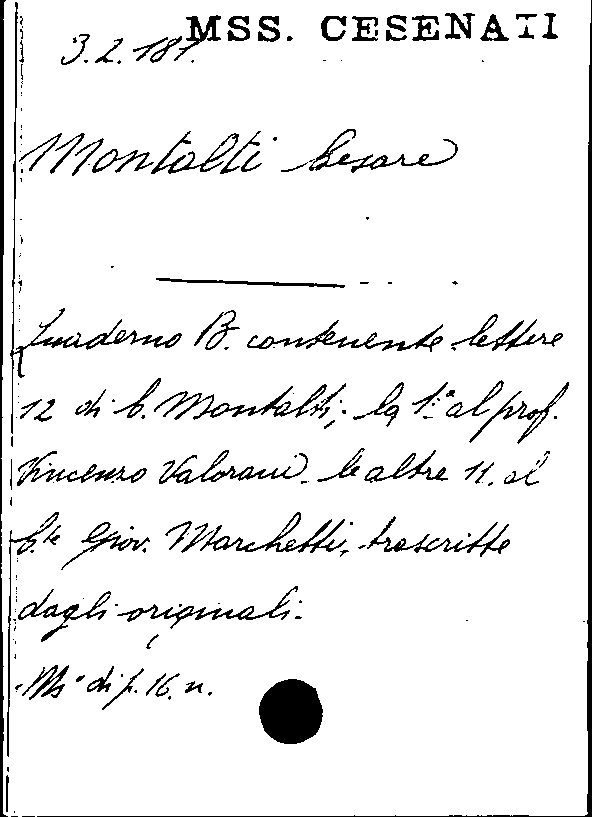 MSS. CESENATI
3.2.181.
Montalti Cesare
Quaderno B. contenente lettere
12 di C. Montalti; la 1ª al prof.
Vincenzo Valorani. le altre 11. al
C.te Giov. Marchetti, trascritte
dagli originali.
"Ms" di p. 16. n.